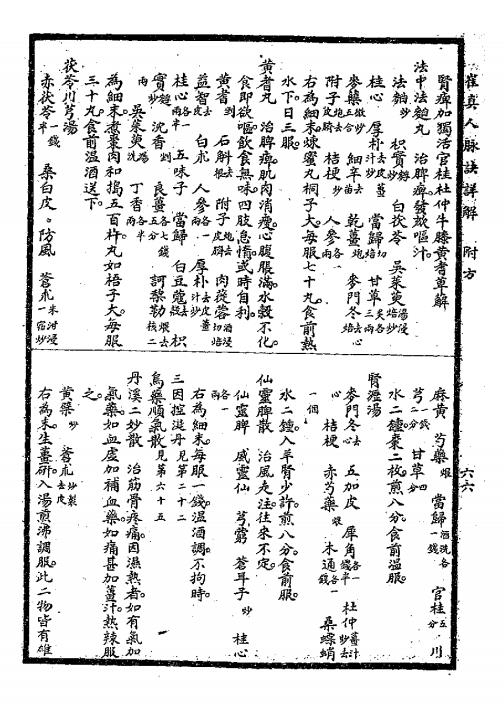 崔真人脉訣詳解 附方 六六
腎痺加獨活官桂杜仲牛膝黄耆萆解
法中法麯丸 治脾痺發欬嘔汁
法麯炒 枳實麩炒 白茯苓 吳茱萸湯浸焙炒
桂心 厚朴去皮薑汁炒 當歸切焙 甘草炙各三兩
麥蘖微炒五合 細辛去苗 乾薑炮 麥門冬去心焙
附子炮去皮臍 桔梗炒 人參各一兩
右為細末煉蜜丸桐子大每服七十丸食前熱
水下日三服
黄耆丸 治脾痺肌肉消瘦心腹脹滿水穀不化
食即欲嘔飲食無味四肢怠惰或時自利
黄耆剉 石斛去根 附子炮去皮臍 肉蓯蓉酒浸切焙
益智去皮 白朮 人參各一兩 厚朴去皮薑汁炒
桂心各一兩半 五味子 當歸 白豆蔻去殼 枳
實麩炒 沈香剉 良薑各七錢五分 訶黎勒煨去核二
兩 吳茱萸湯洗炒 丁香各半兩
為細末煮棗肉和搗五百杵丸如梧子大每服
三十丸食前温酒送下
茯苓川芎湯
赤茯苓一錢半 桑白皮 防風 蒼朮米泔浸一宿炒
麻黄 芍藥煨 當歸酒洗各一錢 官桂五分 川
芎一錢二分 甘草四分
水二鍾棗二枚煎八分食前温服
腎瀝湯
麥門冬去心 五加皮 犀角各一錢半 杜仲薑汁炒去
心 桔梗 赤芍藥煨 木通各一錢 桑螵蛸
一個
水二鍾入羊腎少許煎八分食前服
仙靈脾散 治風走注往來不定
仙靈脾 威靈仙 芎藭 蒼耳子炒 桂心
各一兩
右為細末每服一錢温酒調不拘時
三因控涎丹見第二十二
烏藥順氣散見第六十五
丹溪二妙散 治筋骨疼痛因濕熱者如有氣加
氣藥如血虛加補血藥如痛甚加薑汁熱辣服
之
黄檗炒 蒼朮炒製去皮
右為末生薑研入湯煎沸調服此二物皆有雄